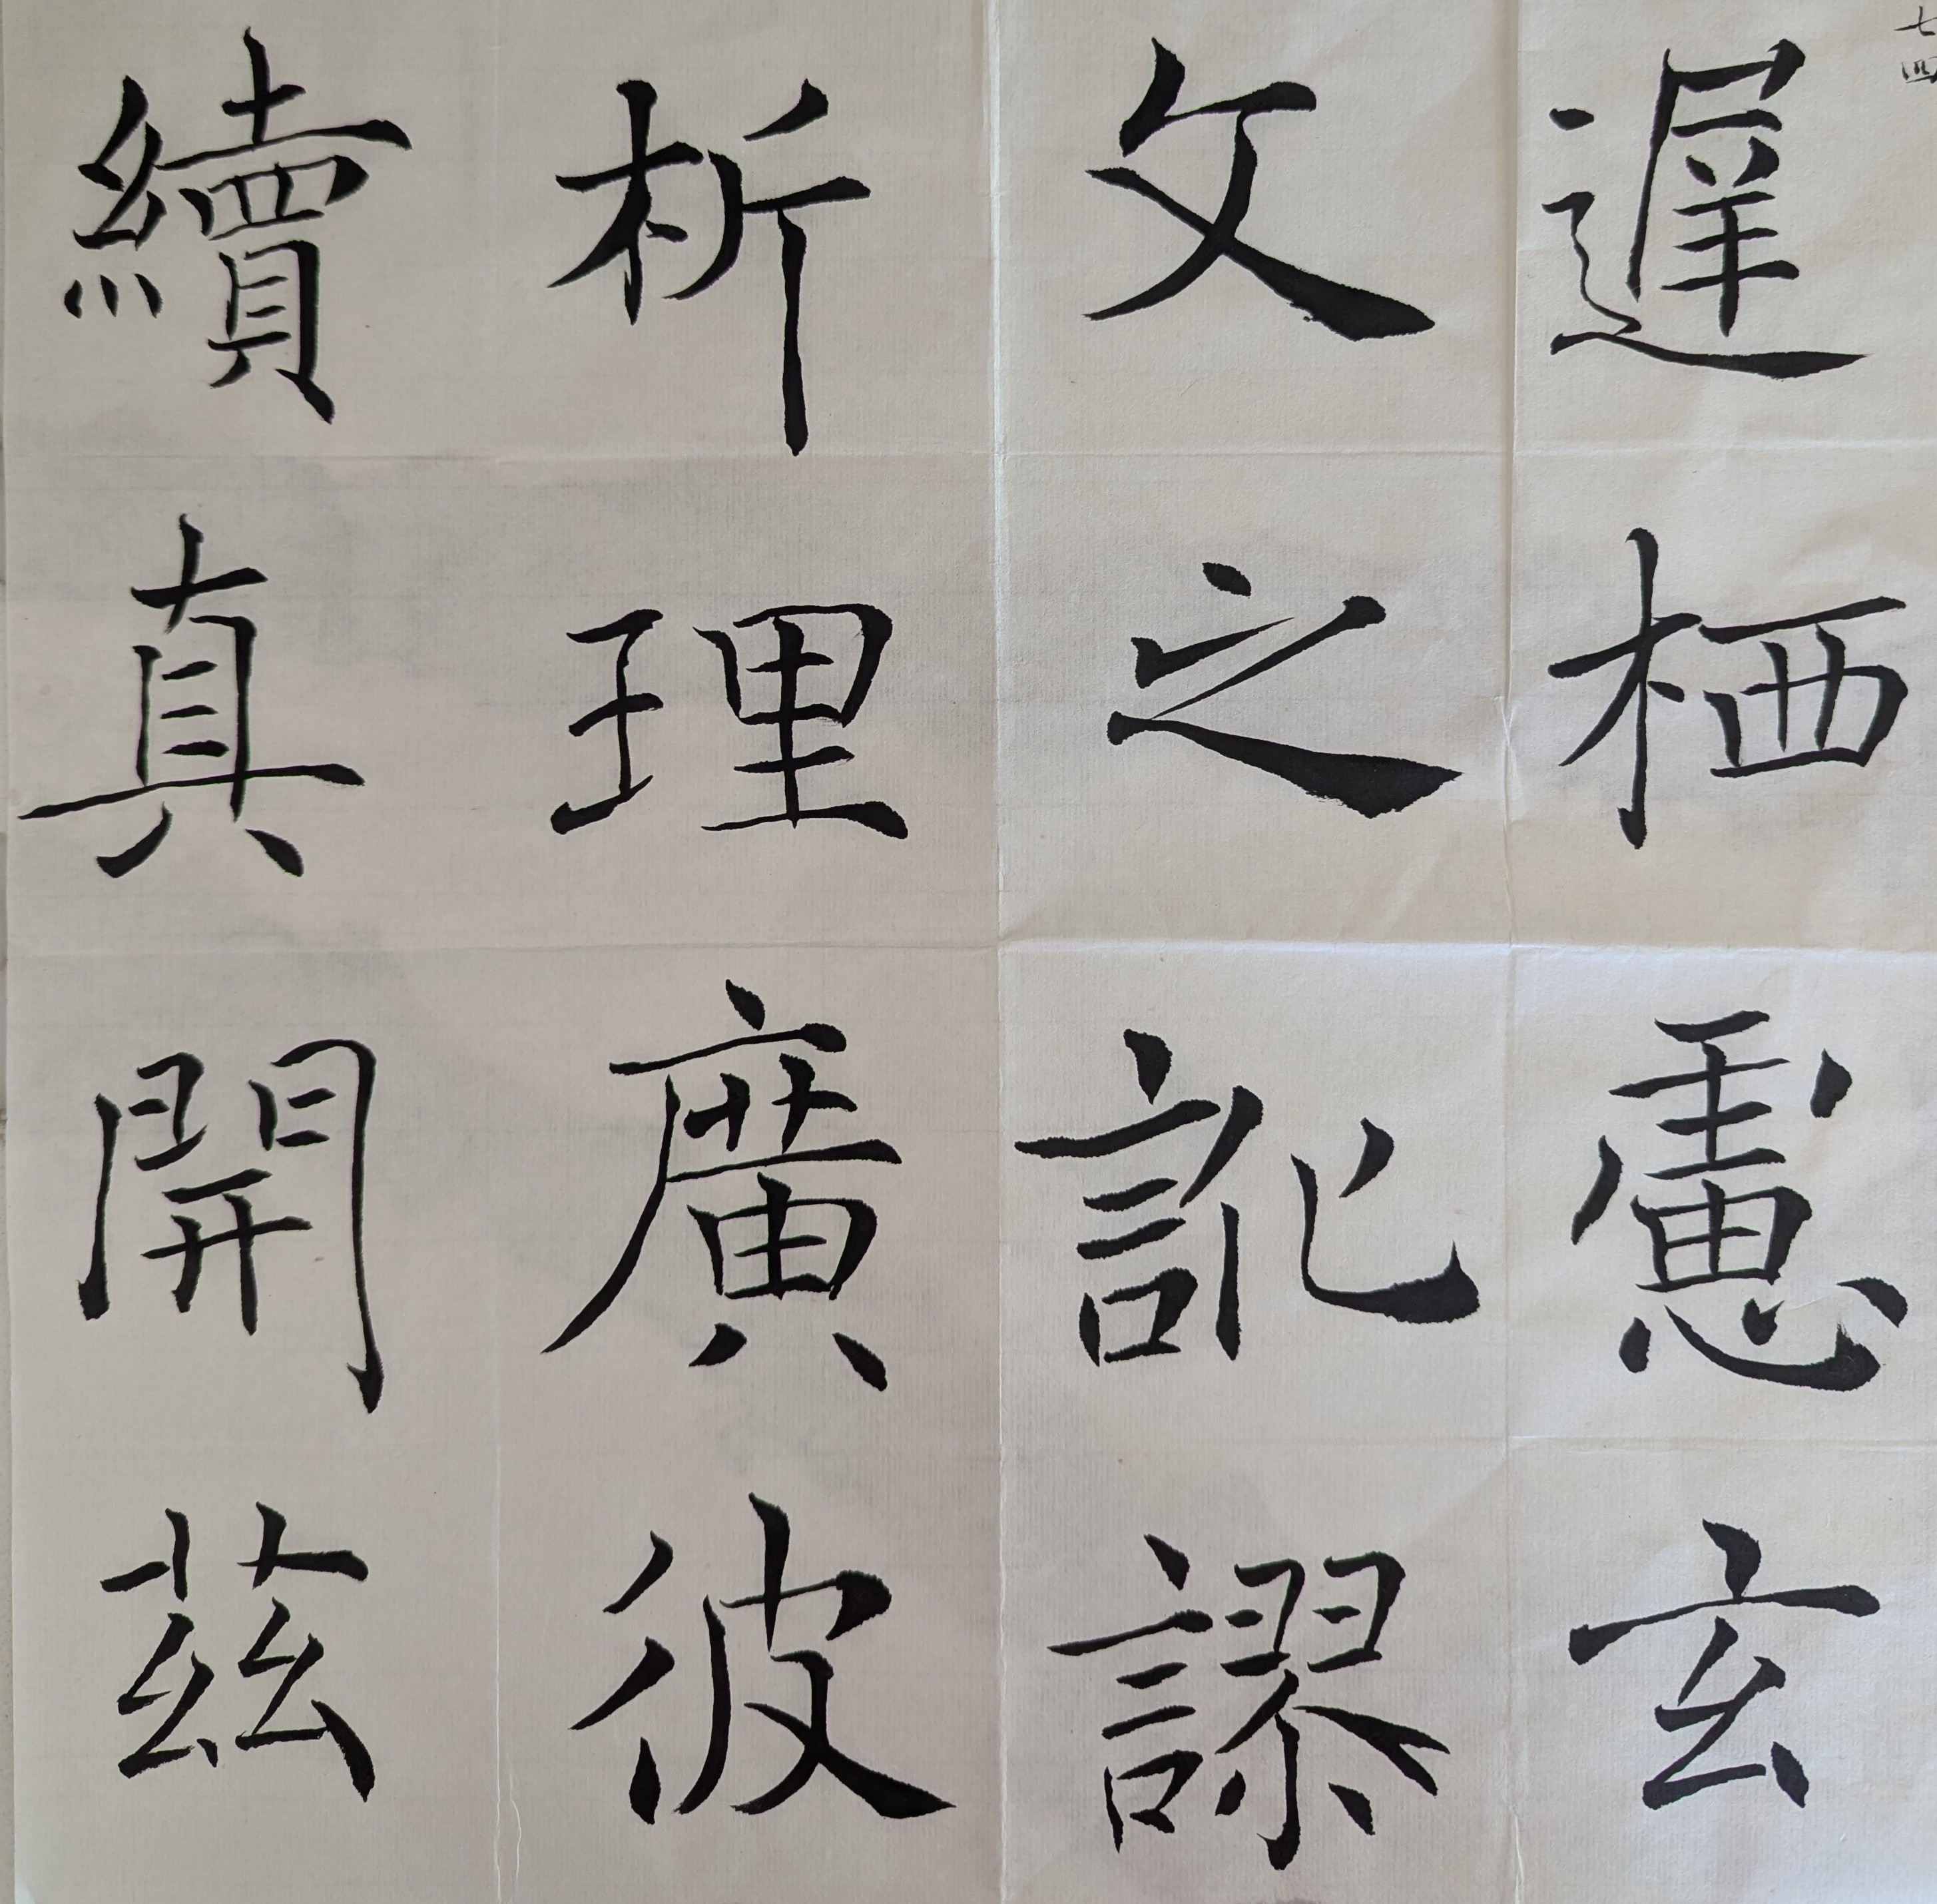 七四
遅栖慮玄
文之訛謬
析理廣彼
續真開茲